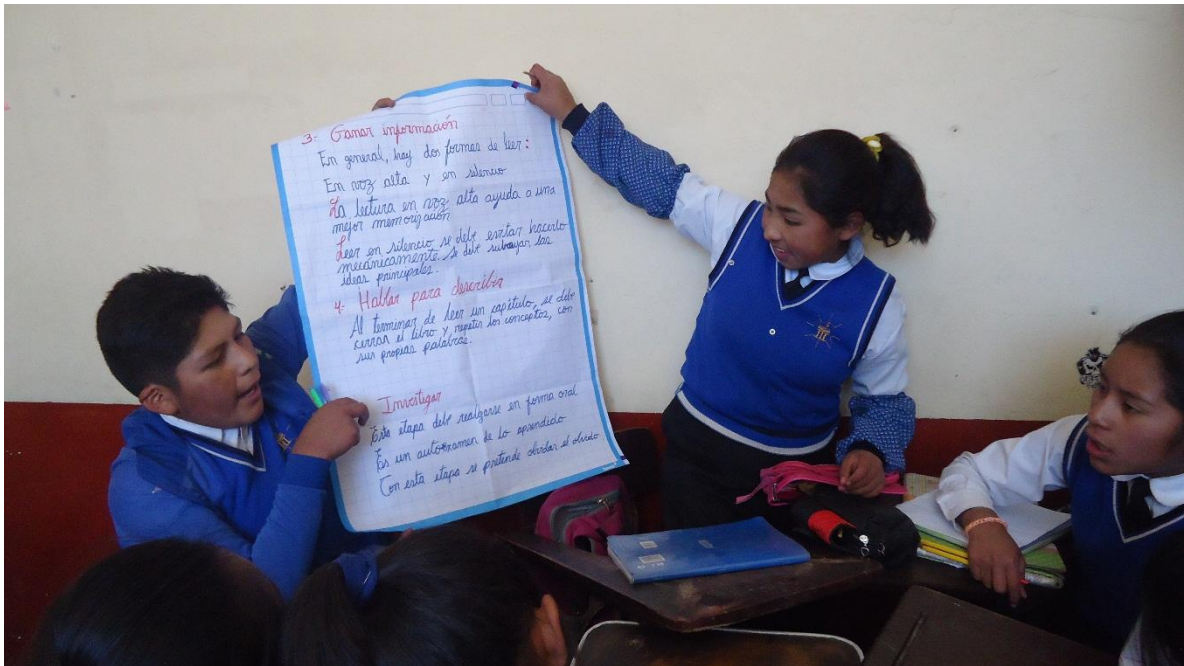 3- Ganar información
En general, hay dos formas de leer:
En voz alta y en silencio
La lectura en voz alta ayuda a una
mejor memorización
Leer en silencio se debe evitar hacerlo
mecánicamente. Se debe subrayar las
ideas principales.
4- Hablar para describir
Al terminar de leer un capítulo, se debe
cerrar el libro y repetir los conceptos, con
sus propias palabras.
Investigar
Esta etapa debe realizarse en forma oral
Es un autoexamen de lo aprendido
Con esta etapa se pretende olvidar el olvido